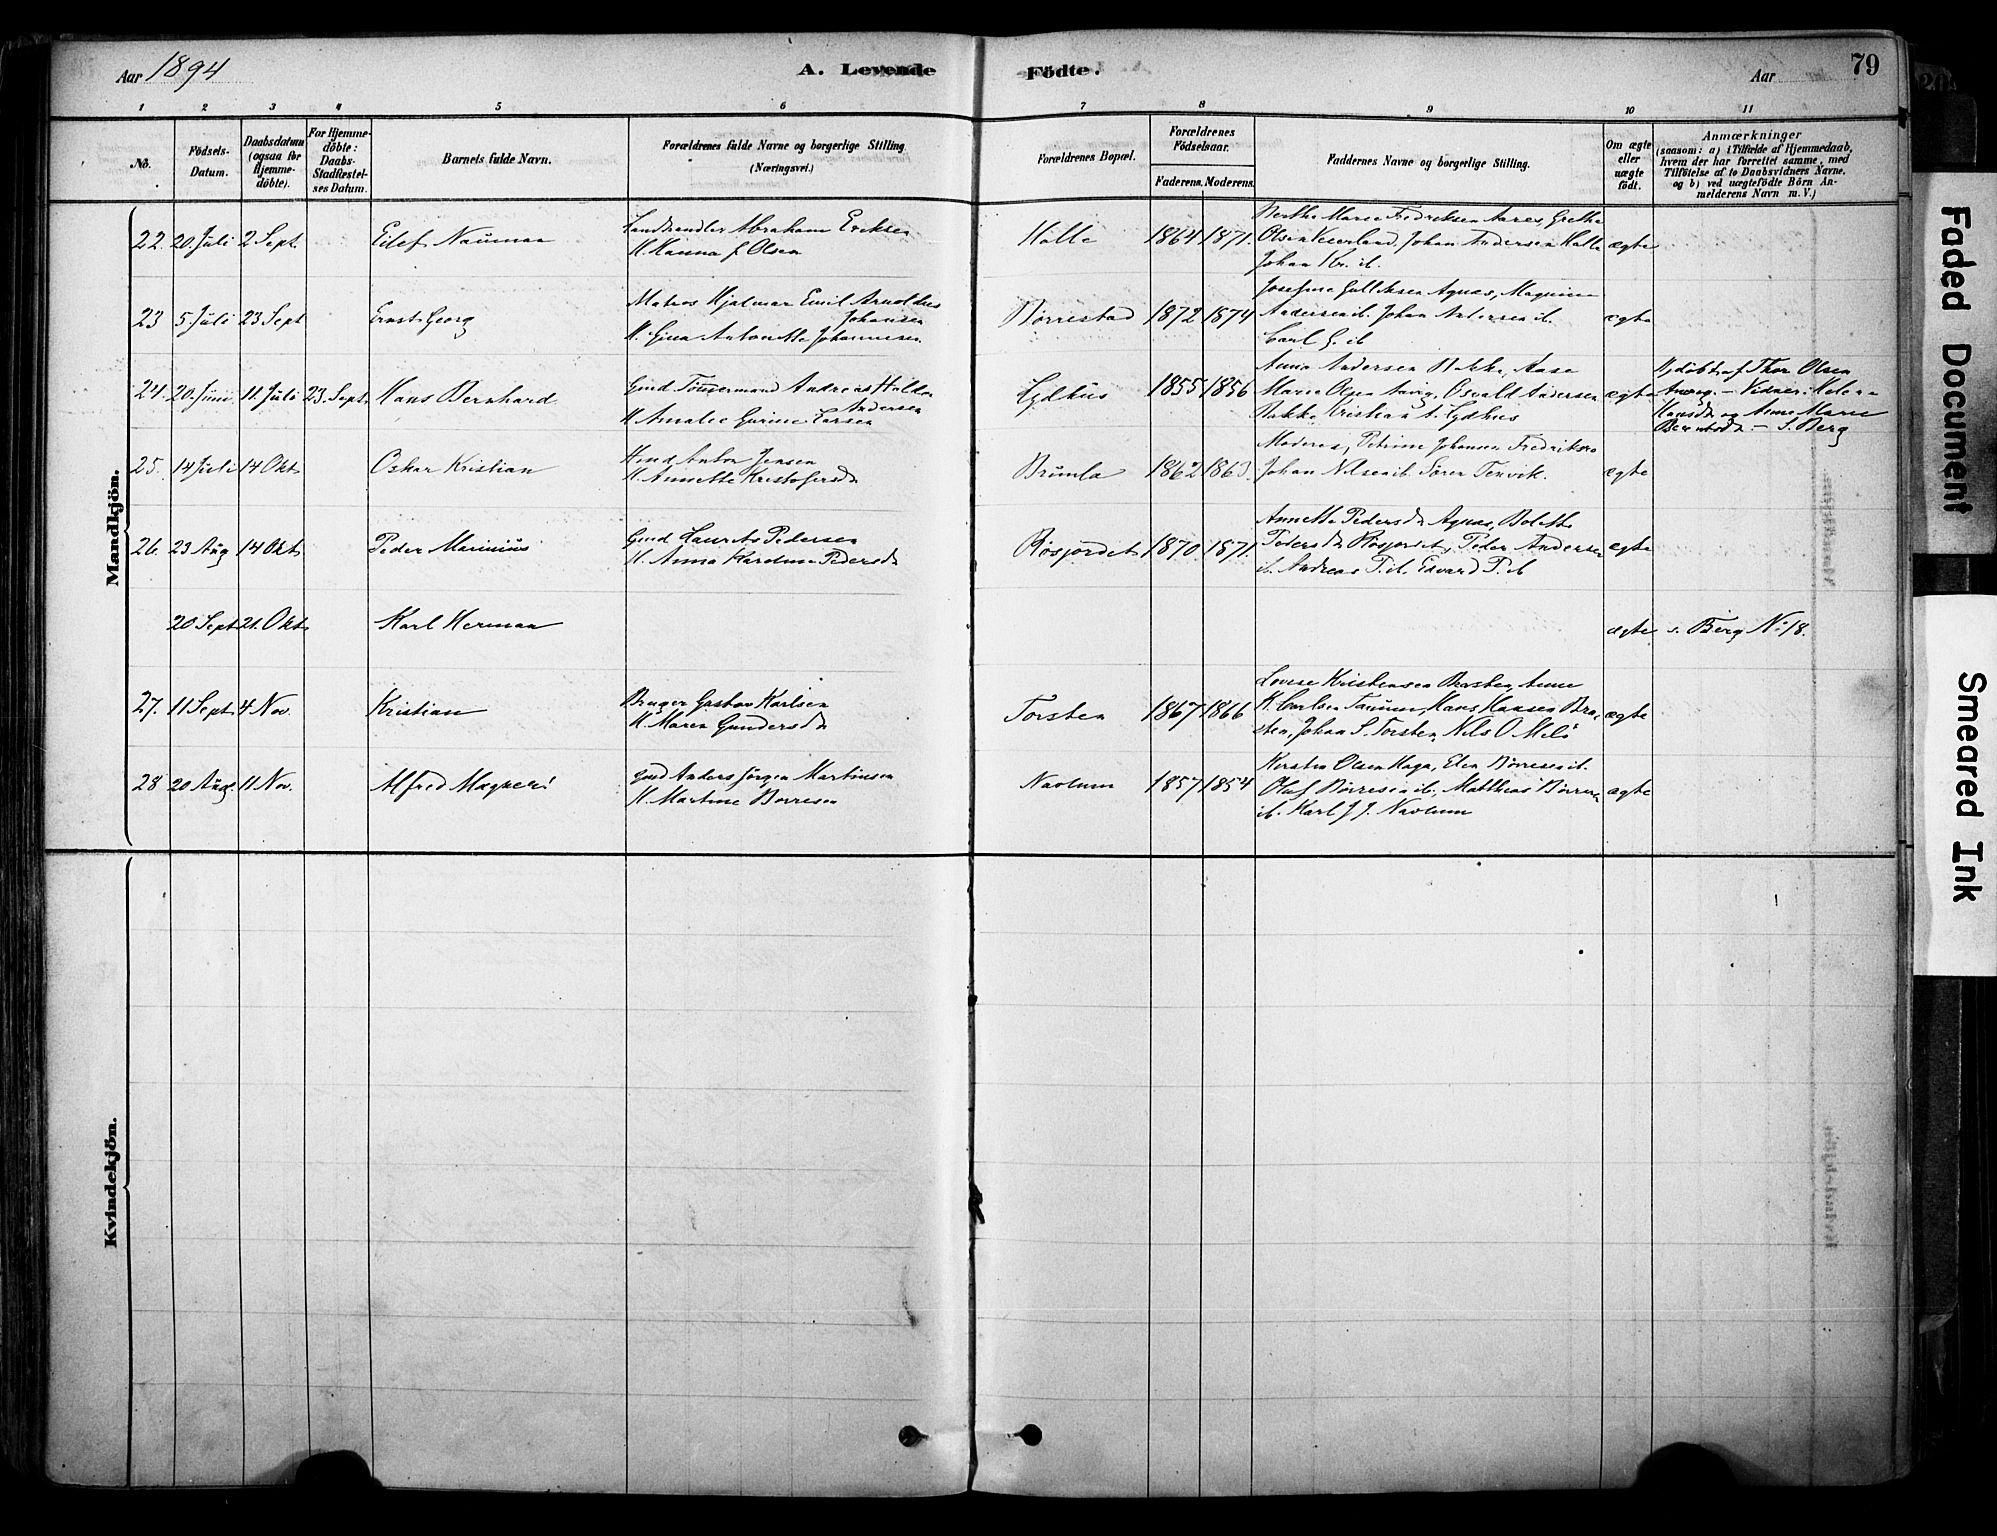 Aar 1894
A. Levende Födte.
Aar
79
1 2 3 4 5 6 7 8 9 10 11
No.
Födsels-
Datum.
Daabsdatum
(ogsaa for
Hjemme-
döbte).
For Hjemme-
döbte:
Daabs-
Stadfæstel-
ses Datum.
Barnets fulde Navn.
Forældrenes fulde Navne og borgerlige Stilling
(Næringsvei.)
Forældrenes Bopæl.
Forældrenes
Födselsaar.
Faderens. Moderens.
Faddernes Navne og borgerlige Stilling.
Om ægte
eller
uægte
födt.
Anmærkninger
(saasom: a) i Tilfælde af Hjemmedaab,
hvem der har forrettet samme, med
Tilföielse af to Daabsvidners Navne.
og b) ved uægtefödte Börn An-
melderens Navn m. V.)
Mandkjön.
22. 20. Juli 2 Sept.
Landhandler Abraham Eriksen
H. Hanna J. Olsen
Halle 1864 1871.
Berthe Marie Fredriksen Aarøs, Grethe
Olsen Veierland, Johan Andersen Halle
Johan Kr. ib.
ægte
23 5. Juli 23 Sept
Ernst Georg
Matros Hjalmar Emil Arnoldus
Johansen
H. Gina Antonette Johannesen
Børrestad 1872 1874
Josefine Gulliksen Agnæs,
Andersen ib. Johan Andersen ib.
Carl G. ib
ægte
24. 20. Juni 11. Juli 23. Sept.
Hans Bernhard
Gmd Tömmermand Andreas
Andersen
H. Amalie Gurine Larsen
Lydhus 1855 1856
Anna Andersen Bakke, Aase
Marie Olsen Osvald Andersen
Bakke, Kristian A. Lydhus
ægte
Hjdöbt af Thor Olsen
Vidner: Helene
Hansdr og Anne Marie
Berntsdr - S. Berg
25. 14 Juli 14 Okt
Oskar Kristian
Anton Jensen
H. Annette Kristofersdr
Brunla 1862 1863.
Moderen, Petrine Johansen Fredriksro
Johan Nilsen ib. Sören Tenvik.
ægte
26. 23 Aug 14 Okt
Peder Marinius
Gmd Laurits Pedersen
H. Anna Karoline Pedersdr
Røsjordet 1870 1871.
Annette Pedersdr Agnæs, Bolette
Pedersdr Røsjordet, Peder Andersen
ib. Andreas P. ib. Edvard P. ib
ægte
20 Sept 21. Okt
Karl Herman
ægte
s. Berg No. 18.
27. 11 Sept 4 Nov.
Kristian
Bruger Gustav Karlsen
H. Maren Gundersdr
Torsten 1867 1866
Lovise Kristensen Brasten, Anne
K. Carlsen Tanum, Hans Hansen Bra-
sten, Johan S. Torsten, Nils O. Melø
ægte
28 20 Aug. 11 Nov.
Alfred Magner!
Gmd Anders Jörgen Martinsen
H. Martine Børresen
Navlum 1857 1854
Kersten Olsen Haga, Elen Børresen ib.
Oluf Børresen ib. Matthias Børresen
ib. Karl J. J. Navlum
ægte
Kvindekjön.
Faded Document
Smeared Ink